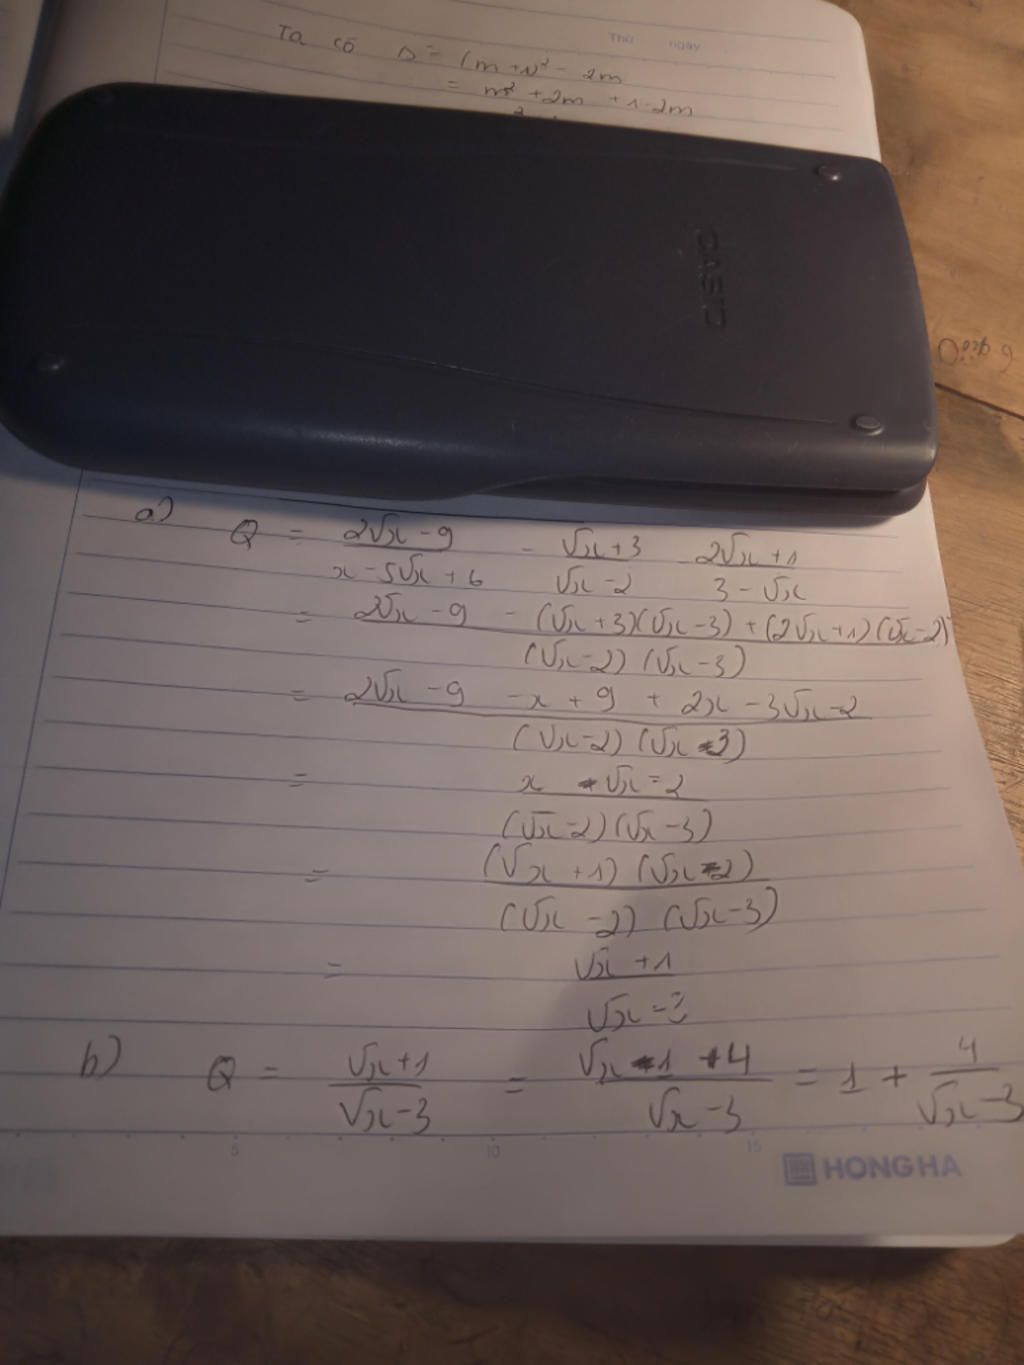 Thứ ngày
Ta có Δ = (m+1)² - 2m
= m² + 2m + 1 - 2m
CASIO
a) Q = (2√x - 9)/(x - 5√x + 6) - (√x + 3)/(√x - 2) - (2√x + 1)/(3 - √x)
= (2√x - 9 - (√x + 3)(√x - 3) + (2√x + 1)(√x - 2))/((√x - 2)(√x - 3))
= (2√x - 9 - x + 9 + 2x - 3√x - 2)/((√x - 2)(√x - 3))
= (x - √x - 2)/((√x - 2)(√x - 3))
= ((√x + 1)(√x - 2))/((√x - 2)(√x - 3))
= (√x + 1)/(√x - 3)
b) Q = (√x + 1)/(√x - 3) = (√x - 1 + 4)/(√x - 3) = 1 + 4/(√x - 3)
5 10 15
HONG HA